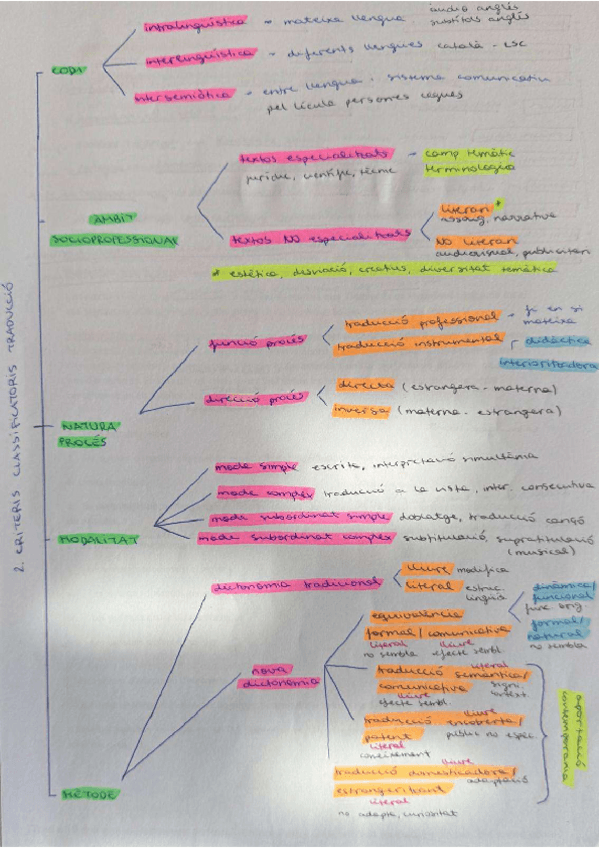 2. CRITERIS CLASSIFICATORIS TRADUCCIÓ
CODI
intralingüística - mateixa llengua - àudio anglès
subtítols anglès
interlingüística - diferents llengües català - esc
intersemiòtica - entre llengua - sistema comunicatiu
pel·lícula persones cegues
ÀMBIT
SOCIOPROFESSIONAL
textos especialitzats - camp temàtic
terminologia
jurídic, científic, tècnic
textos NO especialitzats
literari *
assaig, narrativa
NO literari
audiovisual, publicitari
* estètica, desviació, creatius, diversitat temàtica
NATURA
PROCÉS
funció procés
traducció professional - fi en si
mateixa
traducció instrumental
didàctica
interioritzadora
direcció procés
directa (estrangera - materna)
inversa (materna - estrangera)
MODALITAT
mode simple escrita, interpretació simultània
mode complex traducció a la vista, inter. consecutiva
mode subordinat simple doblatge, traducció cançó
mode subordinat complex subtitulació, supratitulació
(musical)
MÈTODE
dicotomia tradicional
lliure modifica
literal estruc.
lingüís
nova
dicotomia
equivalència
formal/comunicativa
literal lliure
no sembla efecte sembl.
dinàmica/
funcional
func. orig.
formal/
natural
no sembla
traducció semàntica/ literal
comunicativa signi.
context.
lliure
efecte sembl.
traducció encoberta/ lliure
patent públic no espec.
literal
coneixement
traducció domesticadora/ lliure
adaptació
estrangeritzant
literal
no adapta, curiositat
aportació
contemporània